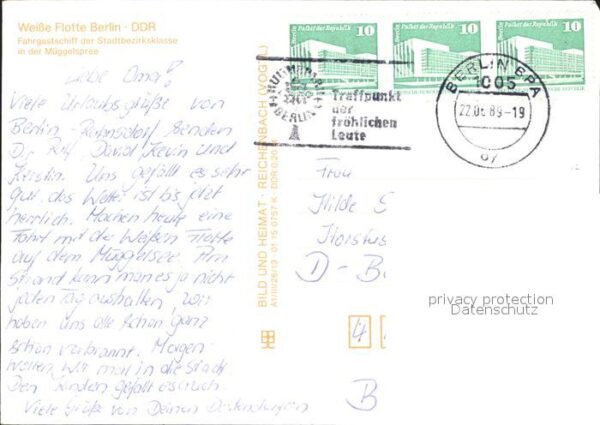 Weiße Flotte Berlin · DDR
Fahrgastschiff der Stadtbezirksklasse
in der Müggelspree
Liebe Oma!
Viele Urlaubsgrüße von
Berlin-Rahnsdorf senden
Dir Ralf, David, Kevin und
Kerstin. Uns gefällt es sehr
gut, das Wetter ist bis jetzt
herrlich. Machen heute eine
Fahrt mit der Weißen Flotte
auf dem Müggelsee. Am
Strand kann man es ja nicht
jeden Tag aushalten, wir
haben uns alle schon ganz
schön verbrannt. Morgen
wollen wir mal in die Stadt.
Den Kindern gefällt es auch.
Viele Grüße von Deinen
BILD UND HEIMAT · REICHENBACH (VOGTL)
A1/III/26/13 01 15 0757 K · DDR 0,20 M
Palast der Republik 10
Palast der Republik 10
Palast der Republik 10
BERLIN
Treffpunkt
der
fröhlichen
Leute
BERLIN BPA
1085
22.06.89-19
Frau
Hilde S
Horstus
D - B
4
B
privacy protection
Datenschutz